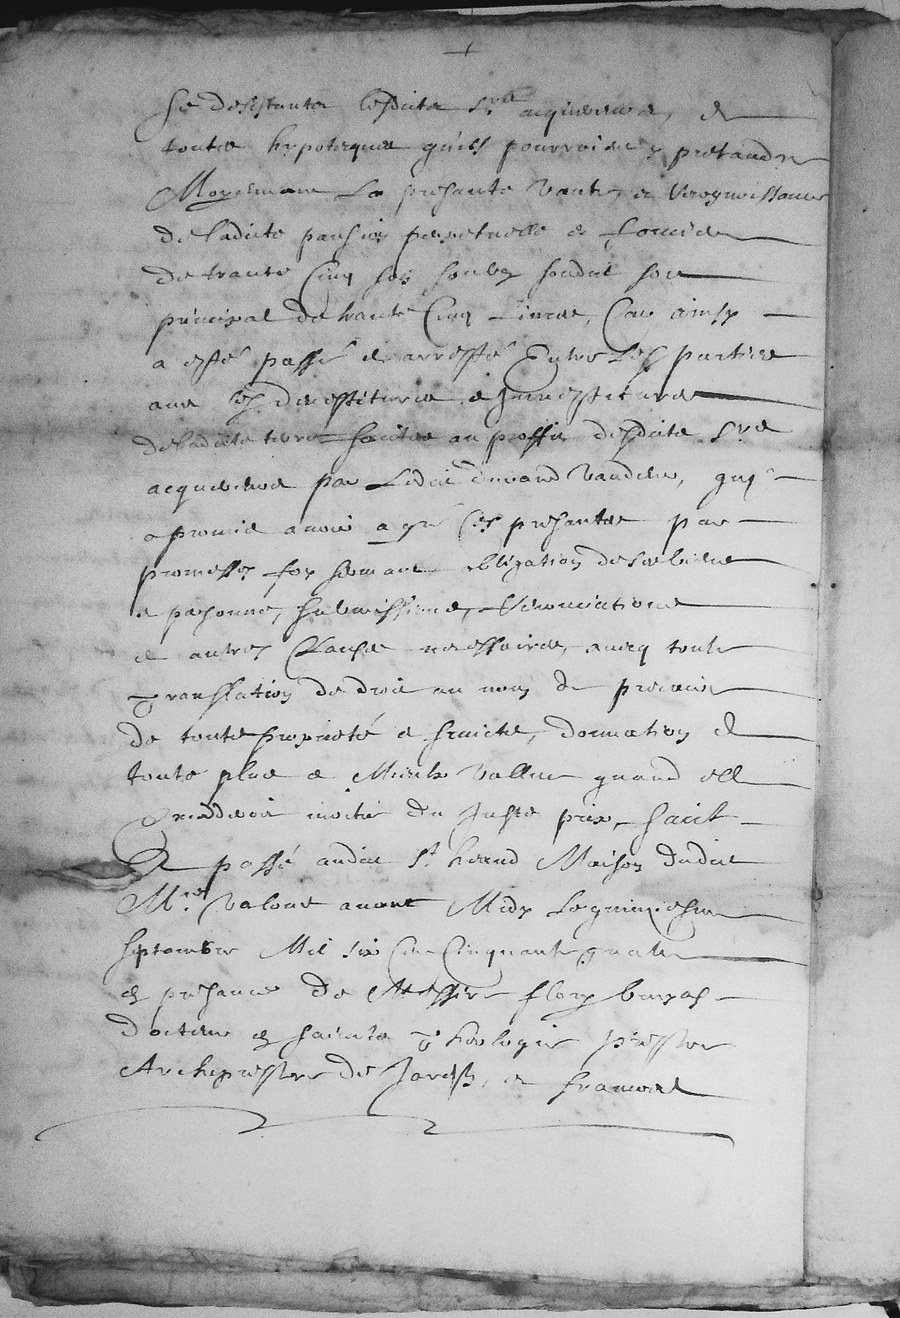 Se desistante lesdicte Srs acquereurs, de
toutes hypoteques quils pourroient y pretandre
Moyenant La presante vante, et recognoissance
de ladicte pansion perpetuelle et fonciere
de trante Cinq sols soubz sondict sort
principal de trante Cinq Livres, Car ainsy
a esté passé et arresté Entre Les parties
avec les devestitures et Investitures
de ladicte terre faictes au proffit desdicts Srs
acquereurs par Ledict vandeur, quy
a promis avoir a gré Ces presantes par
promesses foy serment obligation de ses biens
et personne, submissions, Renonciations
et autres Clauses necessaires, avecq toute
translation de droit au nom de precaire
de toute proprieté et fruicts, donnation de
toute plus et Mieux vallue quand elle
Excederoit moitié du Juste prix, Faict
Et passé audict St heand Maison dudict
Mre valour avant Midy Le quinziesme
septembre Mil six Cens Cinquante quatre
en presance de Messire flory
docteur en saincte theologie prestre
Archiprestre de Jarest, et francois